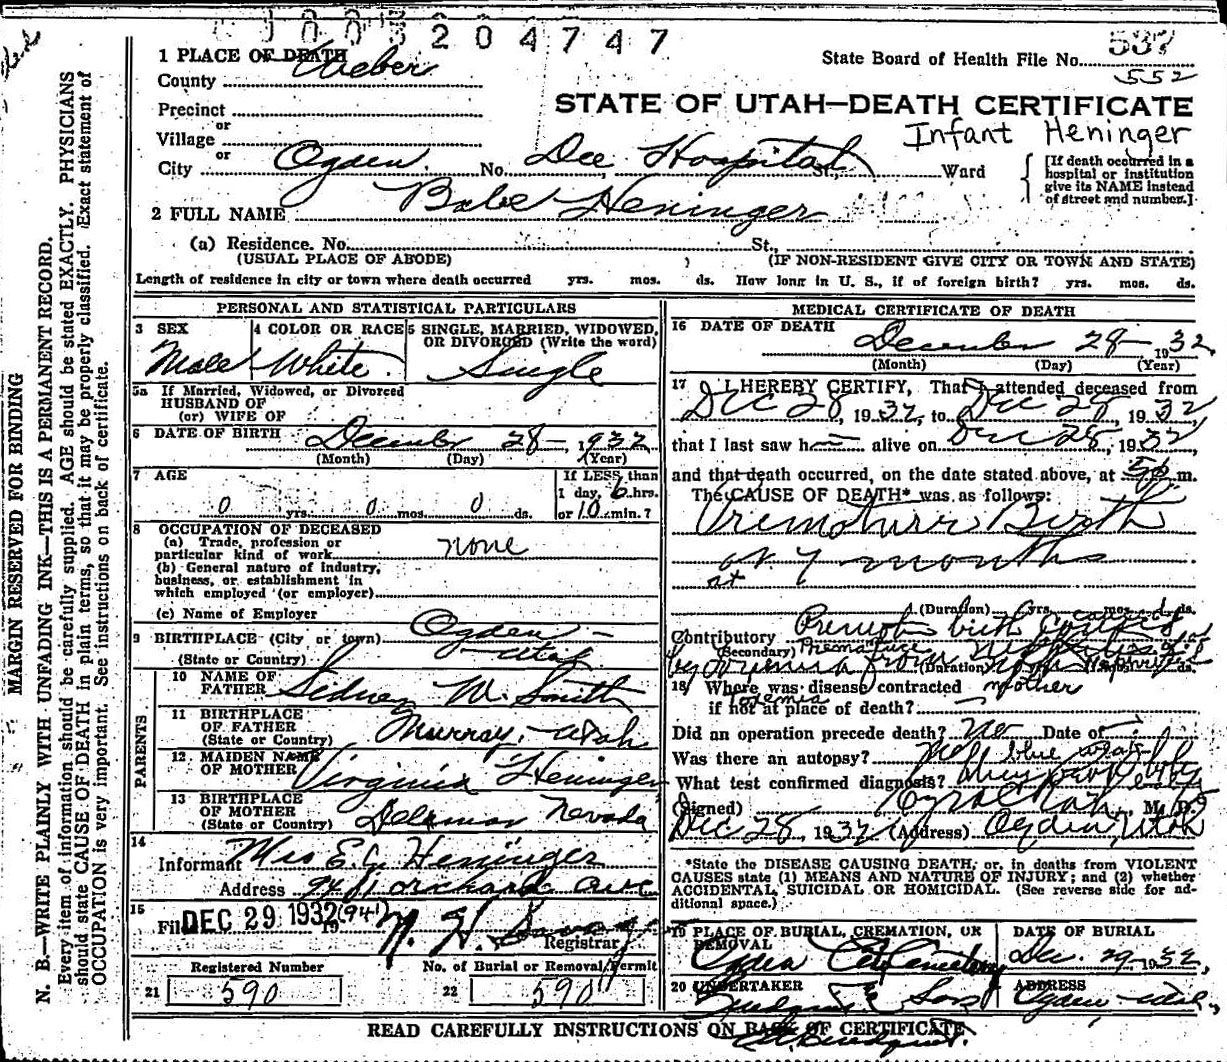 1003204747
537
1 PLACE OF DEATH
Weber
County
State Board of Health File No.
552
Precinct
STATE OF UTAH—DEATH CERTIFICATE
or
Village
Infant Heninger
or
City Ogden. No. Dee Hospital St., Ward
[If death occurred in a hospital or institution give its NAME instead of street and number.]
2 FULL NAME Babe Heninger
(a) Residence. No. St.,
(USUAL PLACE OF ABODE) (IF NON-RESIDENT GIVE CITY OR TOWN AND STATE)
Length of residence in city or town where death occurred yrs. mos. ds. How long in U. S., if of foreign birth? yrs. mos. ds.
MARGIN RESERVED FOR BINDING
N. B.—WRITE PLAINLY WITH UNFADING INK—THIS IS A PERMANENT RECORD.
Every item of information should be carefully supplied. AGE should be stated EXACTLY. PHYSICIANS
should state CAUSE OF DEATH in plain terms, so that it may be properly classified. Exact statement of
OCCUPATION is very important. See instructions on back of certificate.
PERSONAL AND STATISTICAL PARTICULARS
3 SEX
Male
4 COLOR OR RACE
White.
5 SINGLE, MARRIED, WIDOWED,
OR DIVORCED (Write the word)
Single
5a If Married, Widowed, or Divorced
HUSBAND OF
(or) WIFE OF
6 DATE OF BIRTH December 28— 1932
(Month) (Day) (Year)
7 AGE
0 yrs. 0 mos. 0 ds.
If LESS than
1 day, 6 hrs.
or 10 min.?
8 OCCUPATION OF DECEASED
(a) Trade, profession or
particular kind of work none
(b) General nature of industry,
business, or establishment in
which employed (or employer)
(c) Name of Employer
9 BIRTHPLACE (City or town) Ogden —
(State or Country) Utah
PARENTS
10 NAME OF
FATHER Sidney W. Smith
11 BIRTHPLACE
OF FATHER
(State or Country) Murray, Utah
12 MAIDEN NAME
OF MOTHER Virginia Heninger
13 BIRTHPLACE
OF MOTHER
(State or Country) Delamar Nevada
14
Informant Mrs E. G. Heninger
Address Orchard Ave
15
Filed DEC 29 1932 19
N. H. Savage
Registrar
Registered Number
21 590
No. of Burial or Removal Permit
22 590
MEDICAL CERTIFICATE OF DEATH
16 DATE OF DEATH
December 28— 1932
(Month) (Day) (Year)
17 I HEREBY CERTIFY, That I attended deceased from
Dec 28, 1932, to Dec 28, 1932,
that I last saw h alive on Dec 28, 1932
and that death occurred, on the date stated above, at m.
The CAUSE OF DEATH* was as follows:
Premature Birth
at 7 months
at
(Duration) yrs. mos. ds.
Contributory birth caused
(Secondary) Premature
by from
(Duration)
18 Where was disease contracted mother
if not at place of death?
Did an operation precede death? No Date of
Was there an autopsy? No
What test confirmed diagnosis? blue baby
(Signed) Ezra C Rich, M. D.
Dec 28 1932 (Address) Ogden, Utah
*State the DISEASE CAUSING DEATH, or, in deaths from VIOLENT
CAUSES state (1) MEANS AND NATURE OF INJURY; and (2) whether
ACCIDENTAL, SUICIDAL OR HOMICIDAL. (See reverse side for ad-
ditional space.)
19 PLACE OF BURIAL, CREMATION, OR
REMOVAL
Ogden City Cemetery
DATE OF BURIAL
Dec. 29— 1932,
20 UNDERTAKER
Lindquist & Sons
ADDRESS
Ogden Utah,
READ CAREFULLY INSTRUCTIONS ON BACK OF CERTIFICATE